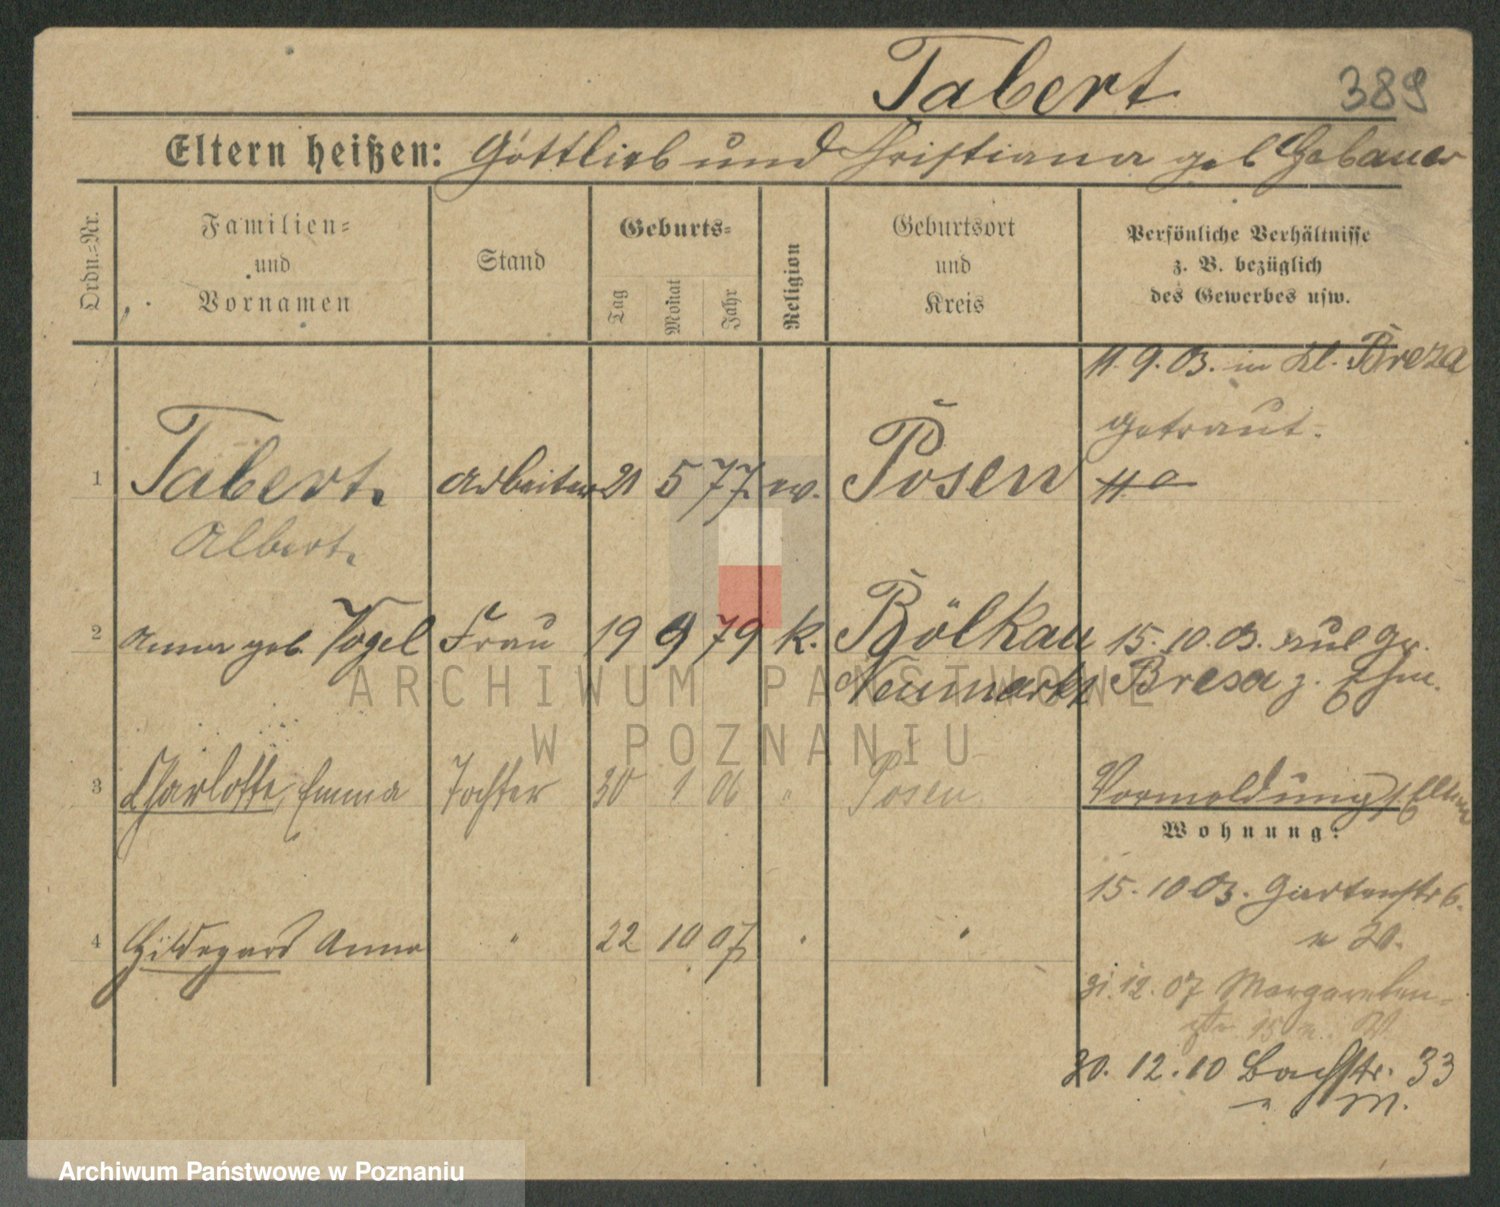 Tabert
389
Eltern heißen: Gottlieb und Christiana geb Gebauer
Ordn.-Nr.
Familien-
und
Vornamen
Stand
Geburts-
Tag
Monat
Jahr
Religion
Geburtsort
und
Kreis
Persönliche Verhältnisse
z. B. bezüglich
des Gewerbes usw.
11.9.03. in Kl. Breza
getraut.
1 Tabert. Arbeiter 21 5 77 ev. Posen
Albert.
2 Anna geb. Vogel Frau 19 9 79 k. Bölkau 15.10.03. aus Gr.
Neumarkt Bresa z. Ehm.
3 Charlotte, Emma Tochter 30 1 06 " Posen Vormeldung
Wohnung:
15.10.03. Gartenstr 6.
4 Hildegard Anna " 22 10 07 " "
n 20.
31.12.07 Margareten-
str 15
30.12.10 Bachstr. 33
ARCHIWUM PAŃSTWOWE
W POZNANIU
Archiwum Państwowe w Poznaniu